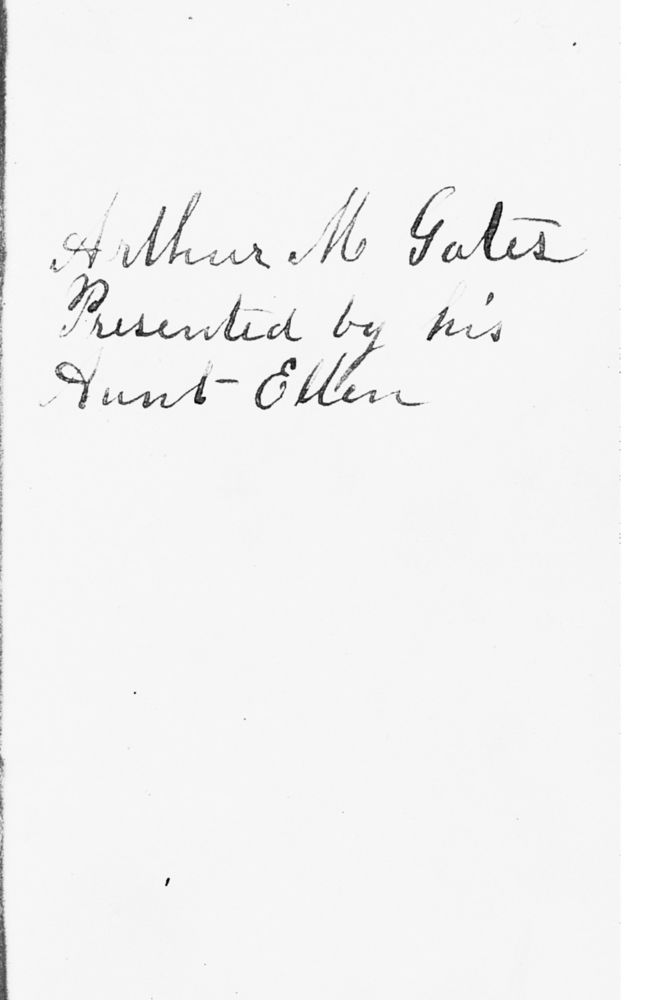 Arthur M Gates
Presented by his
Aunt Ellen